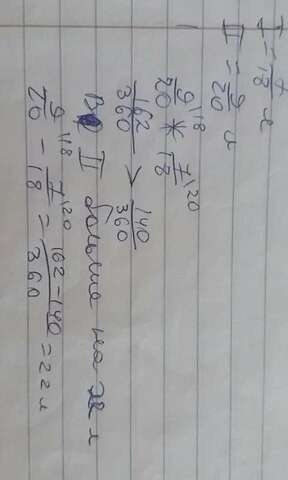 I = 7/18 л
II = 9/20 л
9/20 ^18 * 7/18 ^20
162/360 > 140/360
Во II больше на л
9/20 ^18 - 7/18 ^20 = 162-140/360 = 22 л